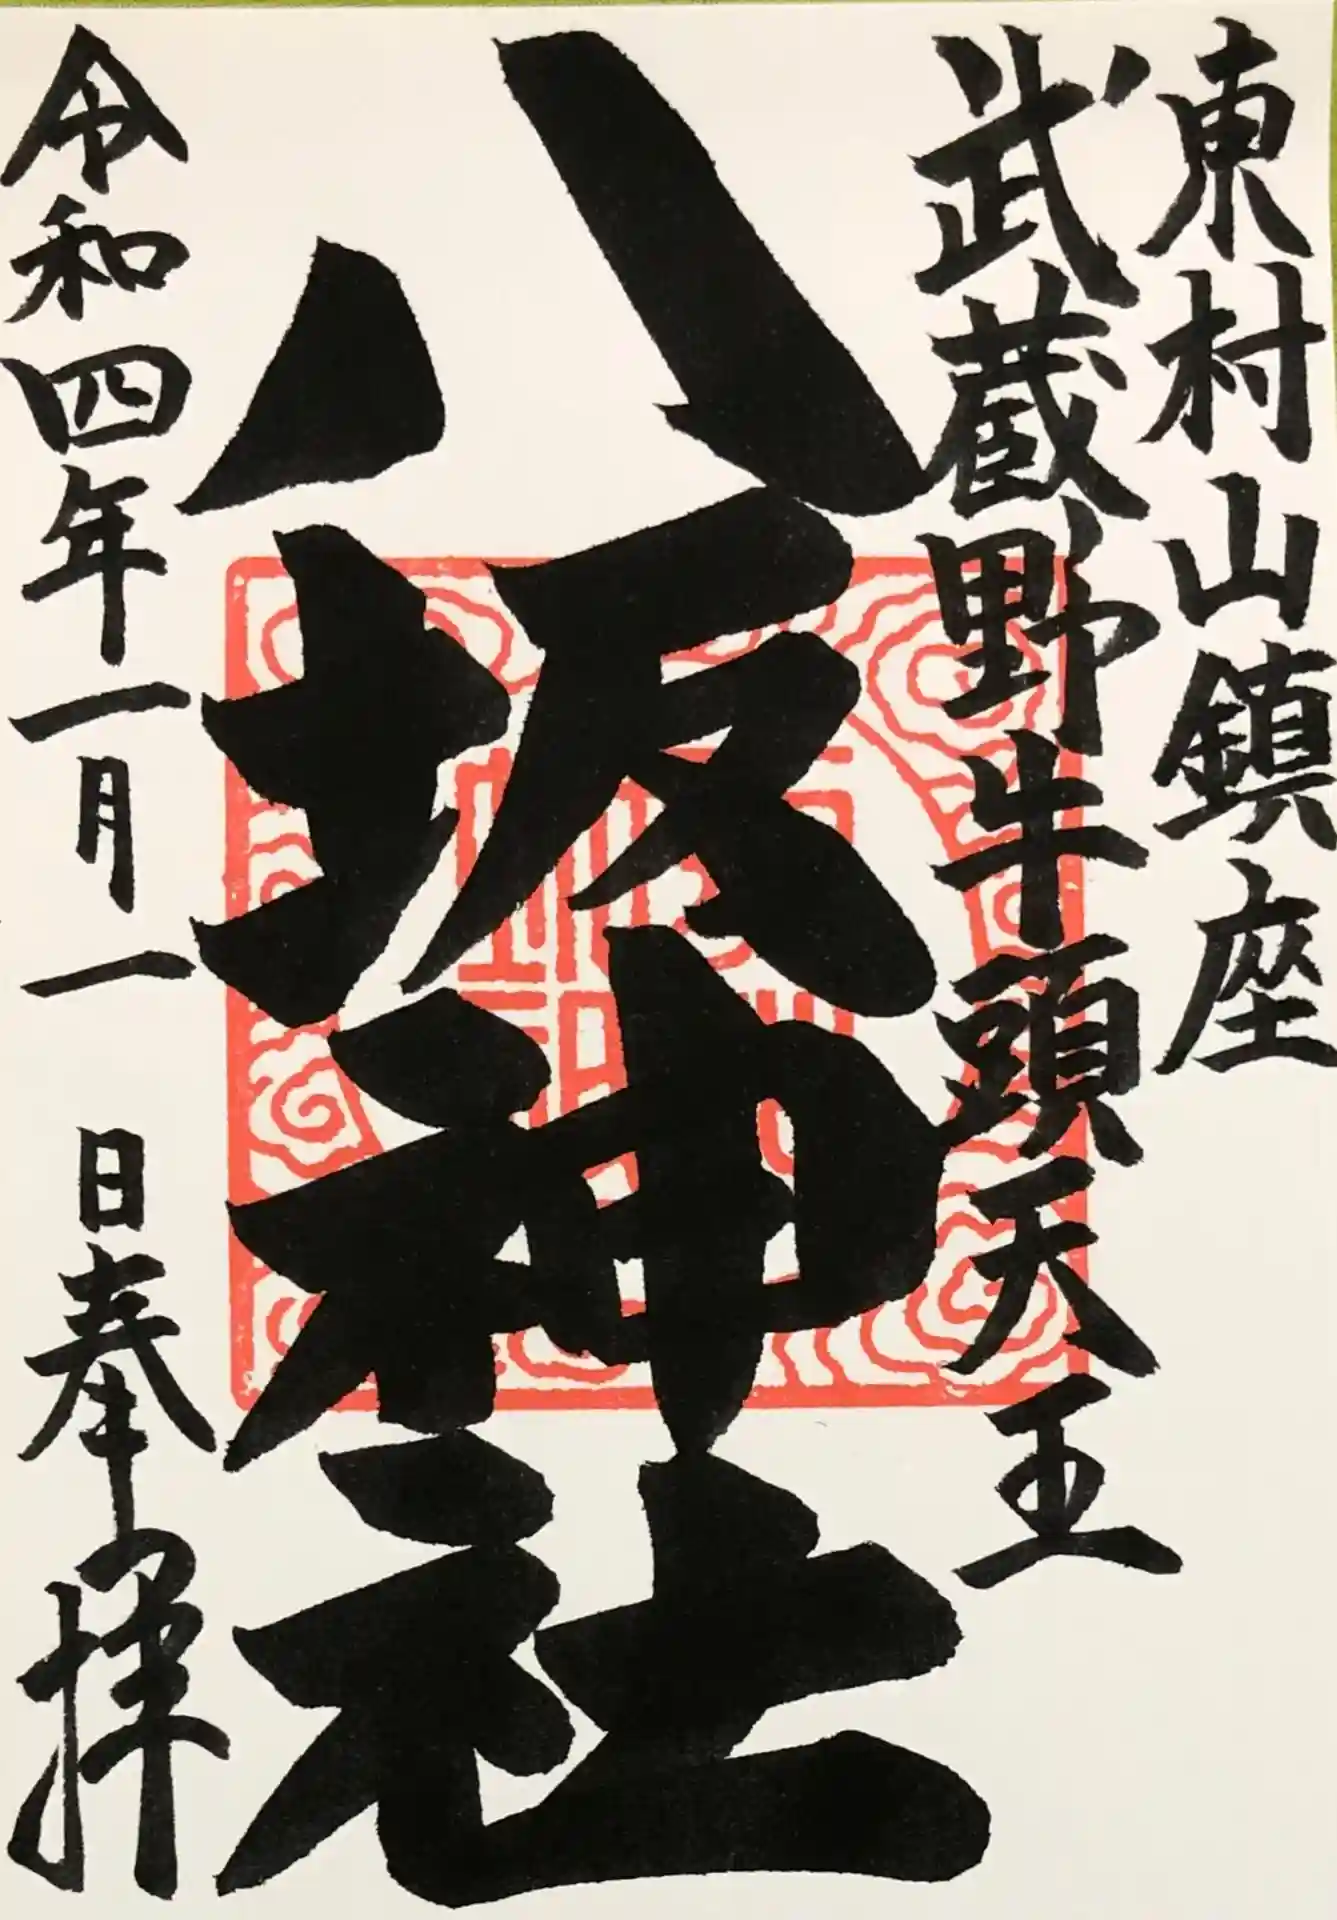 東村山鎮座
武蔵野牛頭天王
八坂神社
令和四年一月一日奉拝